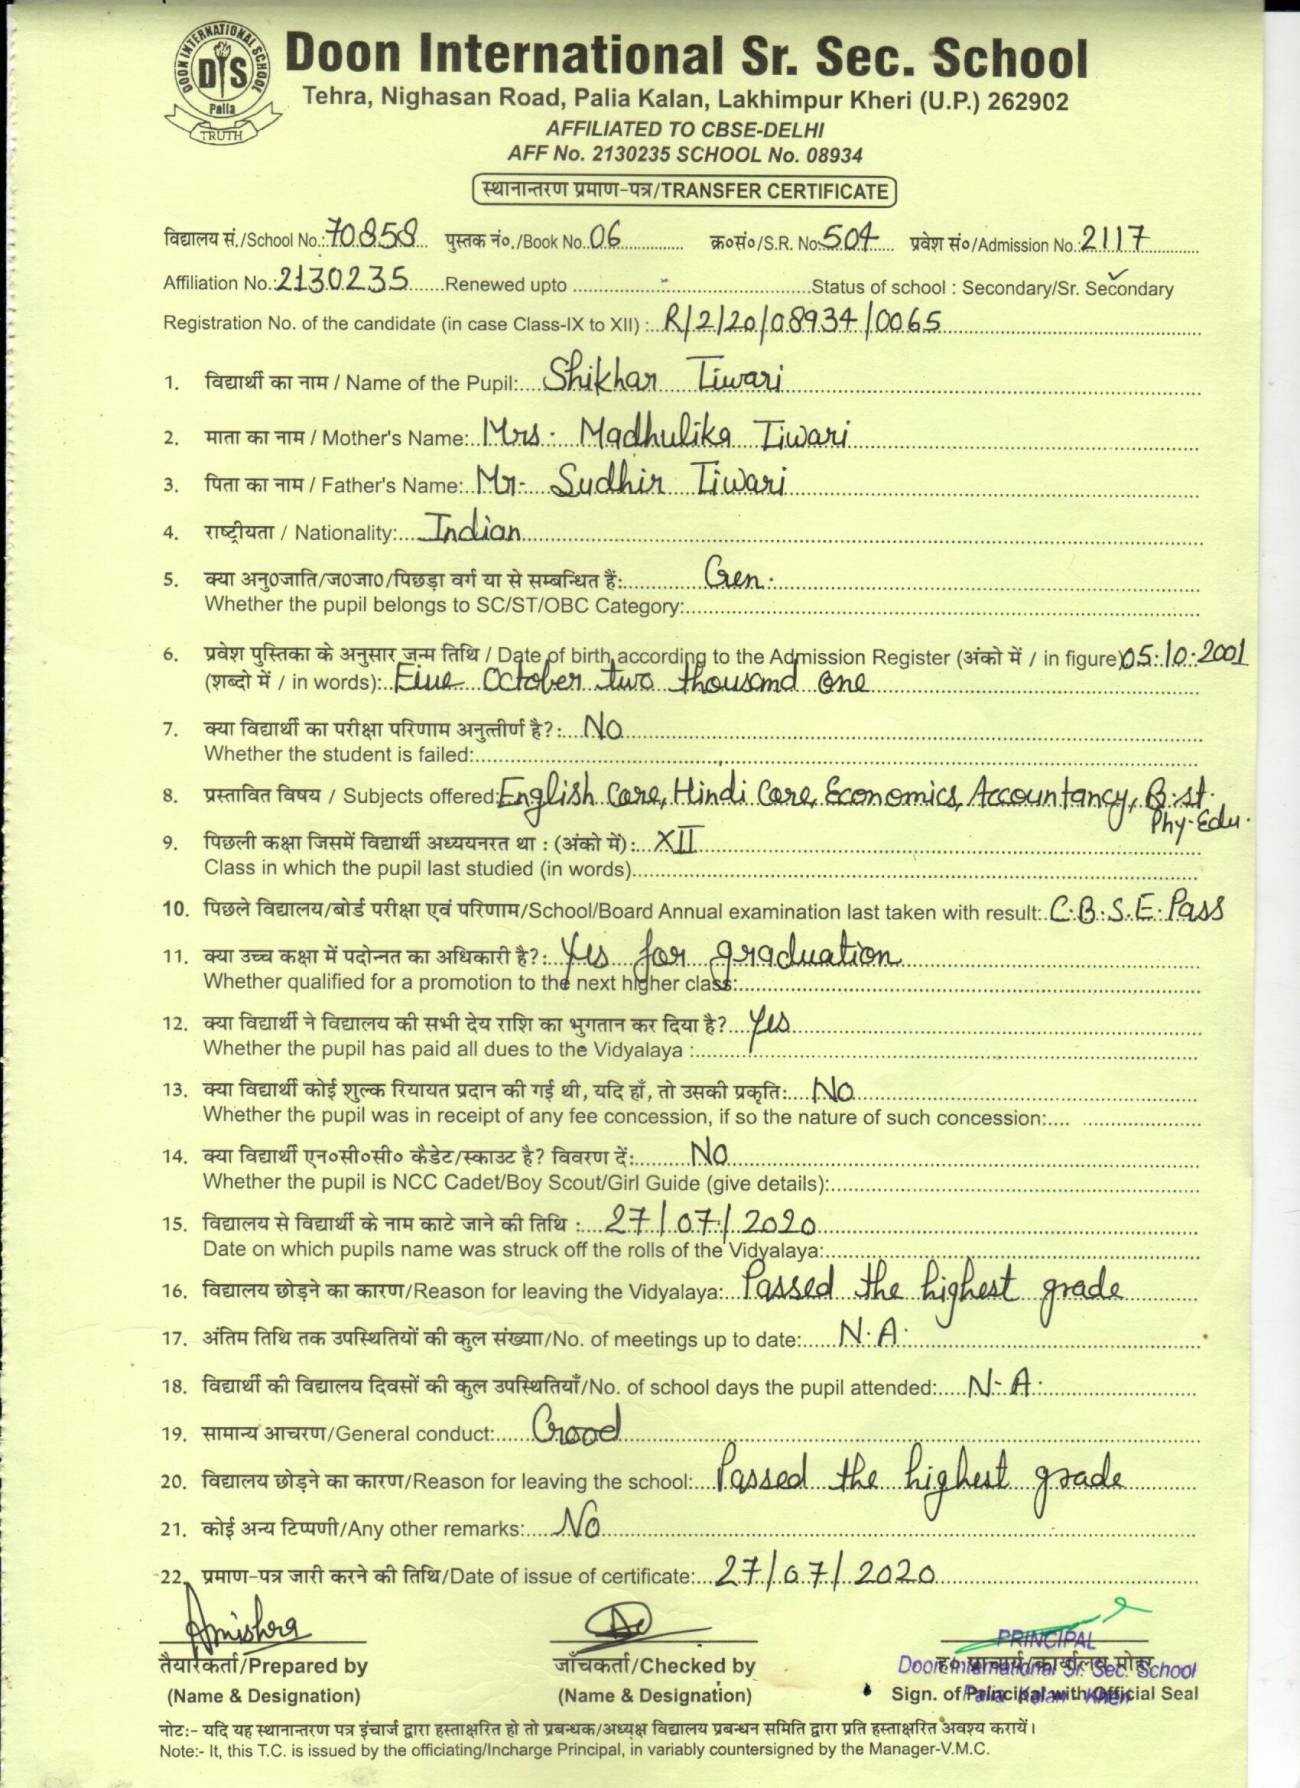 DOON INTERNATIONAL SCHOOL
DIS
Palia
TRUTH
Doon International Sr. Sec. School
Tehra, Nighasan Road, Palia Kalan, Lakhimpur Kheri (U.P.) 262902
AFFILIATED TO CBSE-DELHI
AFF No. 2130235 SCHOOL No. 08934
स्थानान्तरण प्रमाण-पत्र/TRANSFER CERTIFICATE
विद्यालय सं./School No.: 70858 पुस्तक नं०./Book No. 06 क्र०सं०/S.R. No: 504 प्रवेश सं०/Admission No.: 2117
Affiliation No.: 2130235 Renewed upto - Status of school : Secondary/Sr. Secondary ✓
Registration No. of the candidate (in case Class-IX to XII) : R/2/20/08934/0065
1. विद्यार्थी का नाम / Name of the Pupil: Shikhar Tiwari
2. माता का नाम / Mother's Name: Mrs. Madhulika Tiwari
3. पिता का नाम / Father's Name: Mr. Sudhir Tiwari
4. राष्ट्रीयता / Nationality: Indian
5. क्या अनु0जाति/ज0जा0/पिछड़ा वर्ग या से सम्बन्धित हैं: Gen.
Whether the pupil belongs to SC/ST/OBC Category:
6. प्रवेश पुस्तिका के अनुसार जन्म तिथि / Date of birth according to the Admission Register (अंको में / in figure) 05.10.2001
(शब्दो में / in words): Five October two thousand one
7. क्या विद्यार्थी का परीक्षा परिणाम अनुत्तीर्ण है?: No
Whether the student is failed:
8. प्रस्तावित विषय / Subjects offered: English Core, Hindi Core, Economics, Accountancy, B.st.
Phy-Edu.
9. पिछली कक्षा जिसमें विद्यार्थी अध्ययनरत था : (अंको में): XII
Class in which the pupil last studied (in words)
10. पिछले विद्यालय/बोर्ड परीक्षा एवं परिणाम/School/Board Annual examination last taken with result: C.B.S.E. Pass
11. क्या उच्च कक्षा में पदोन्नत का अधिकारी है?: Yes for graduation
Whether qualified for a promotion to the next higher class:
12. क्या विद्यार्थी ने विद्यालय की सभी देय राशि का भुगतान कर दिया है? Yes
Whether the pupil has paid all dues to the Vidyalaya :
13. क्या विद्यार्थी कोई शुल्क रियायत प्रदान की गई थी, यदि हाँ, तो उसकी प्रकृति: No
Whether the pupil was in receipt of any fee concession, if so the nature of such concession:
14. क्या विद्यार्थी एन०सी०सी० कैडेट/स्काउट है? विवरण दें: No
Whether the pupil is NCC Cadet/Boy Scout/Girl Guide (give details):
15. विद्यालय से विद्यार्थी के नाम काटे जाने की तिथि : 27/07/2020
Date on which pupils name was struck off the rolls of the Vidyalaya:
16. विद्यालय छोड़ने का कारण/Reason for leaving the Vidyalaya: Passed the highest grade
17. अंतिम तिथि तक उपस्थितियों की कुल संख्याा/No. of meetings up to date: N.A.
18. विद्यार्थी की विद्यालय दिवसों की कुल उपस्थितियाँ/No. of school days the pupil attended: N.A.
19. सामान्य आचरण/General conduct: Good
20. विद्यालय छोड़ने का कारण/Reason for leaving the school: Passed the highest grade
21. कोई अन्य टिप्पणी/Any other remarks: No
22. प्रमाण-पत्र जारी करने की तिथि/Date of issue of certificate: 27/07/2020
Amishra
PRINCIPAL
तैयारकर्ता/Prepared by जाँचकर्ता/Checked by ह० प्राचार्य/कार्यालय मोहर
Doon International Sr. Sec. School
(Name & Designation) (Name & Designation) Sign. of Principal with Official Seal
Palia Kalan Kheri
नोट:- यदि यह स्थानान्तरण पत्र इंचार्ज द्वारा हस्ताक्षरित हो तो प्रबन्धक/अध्यक्ष विद्यालय प्रबन्धन समिति द्वारा प्रति हस्ताक्षरित अवश्य करायें।
Note:- It, this T.C. is issued by the officiating/Incharge Principal, in variably countersigned by the Manager-V.M.C.